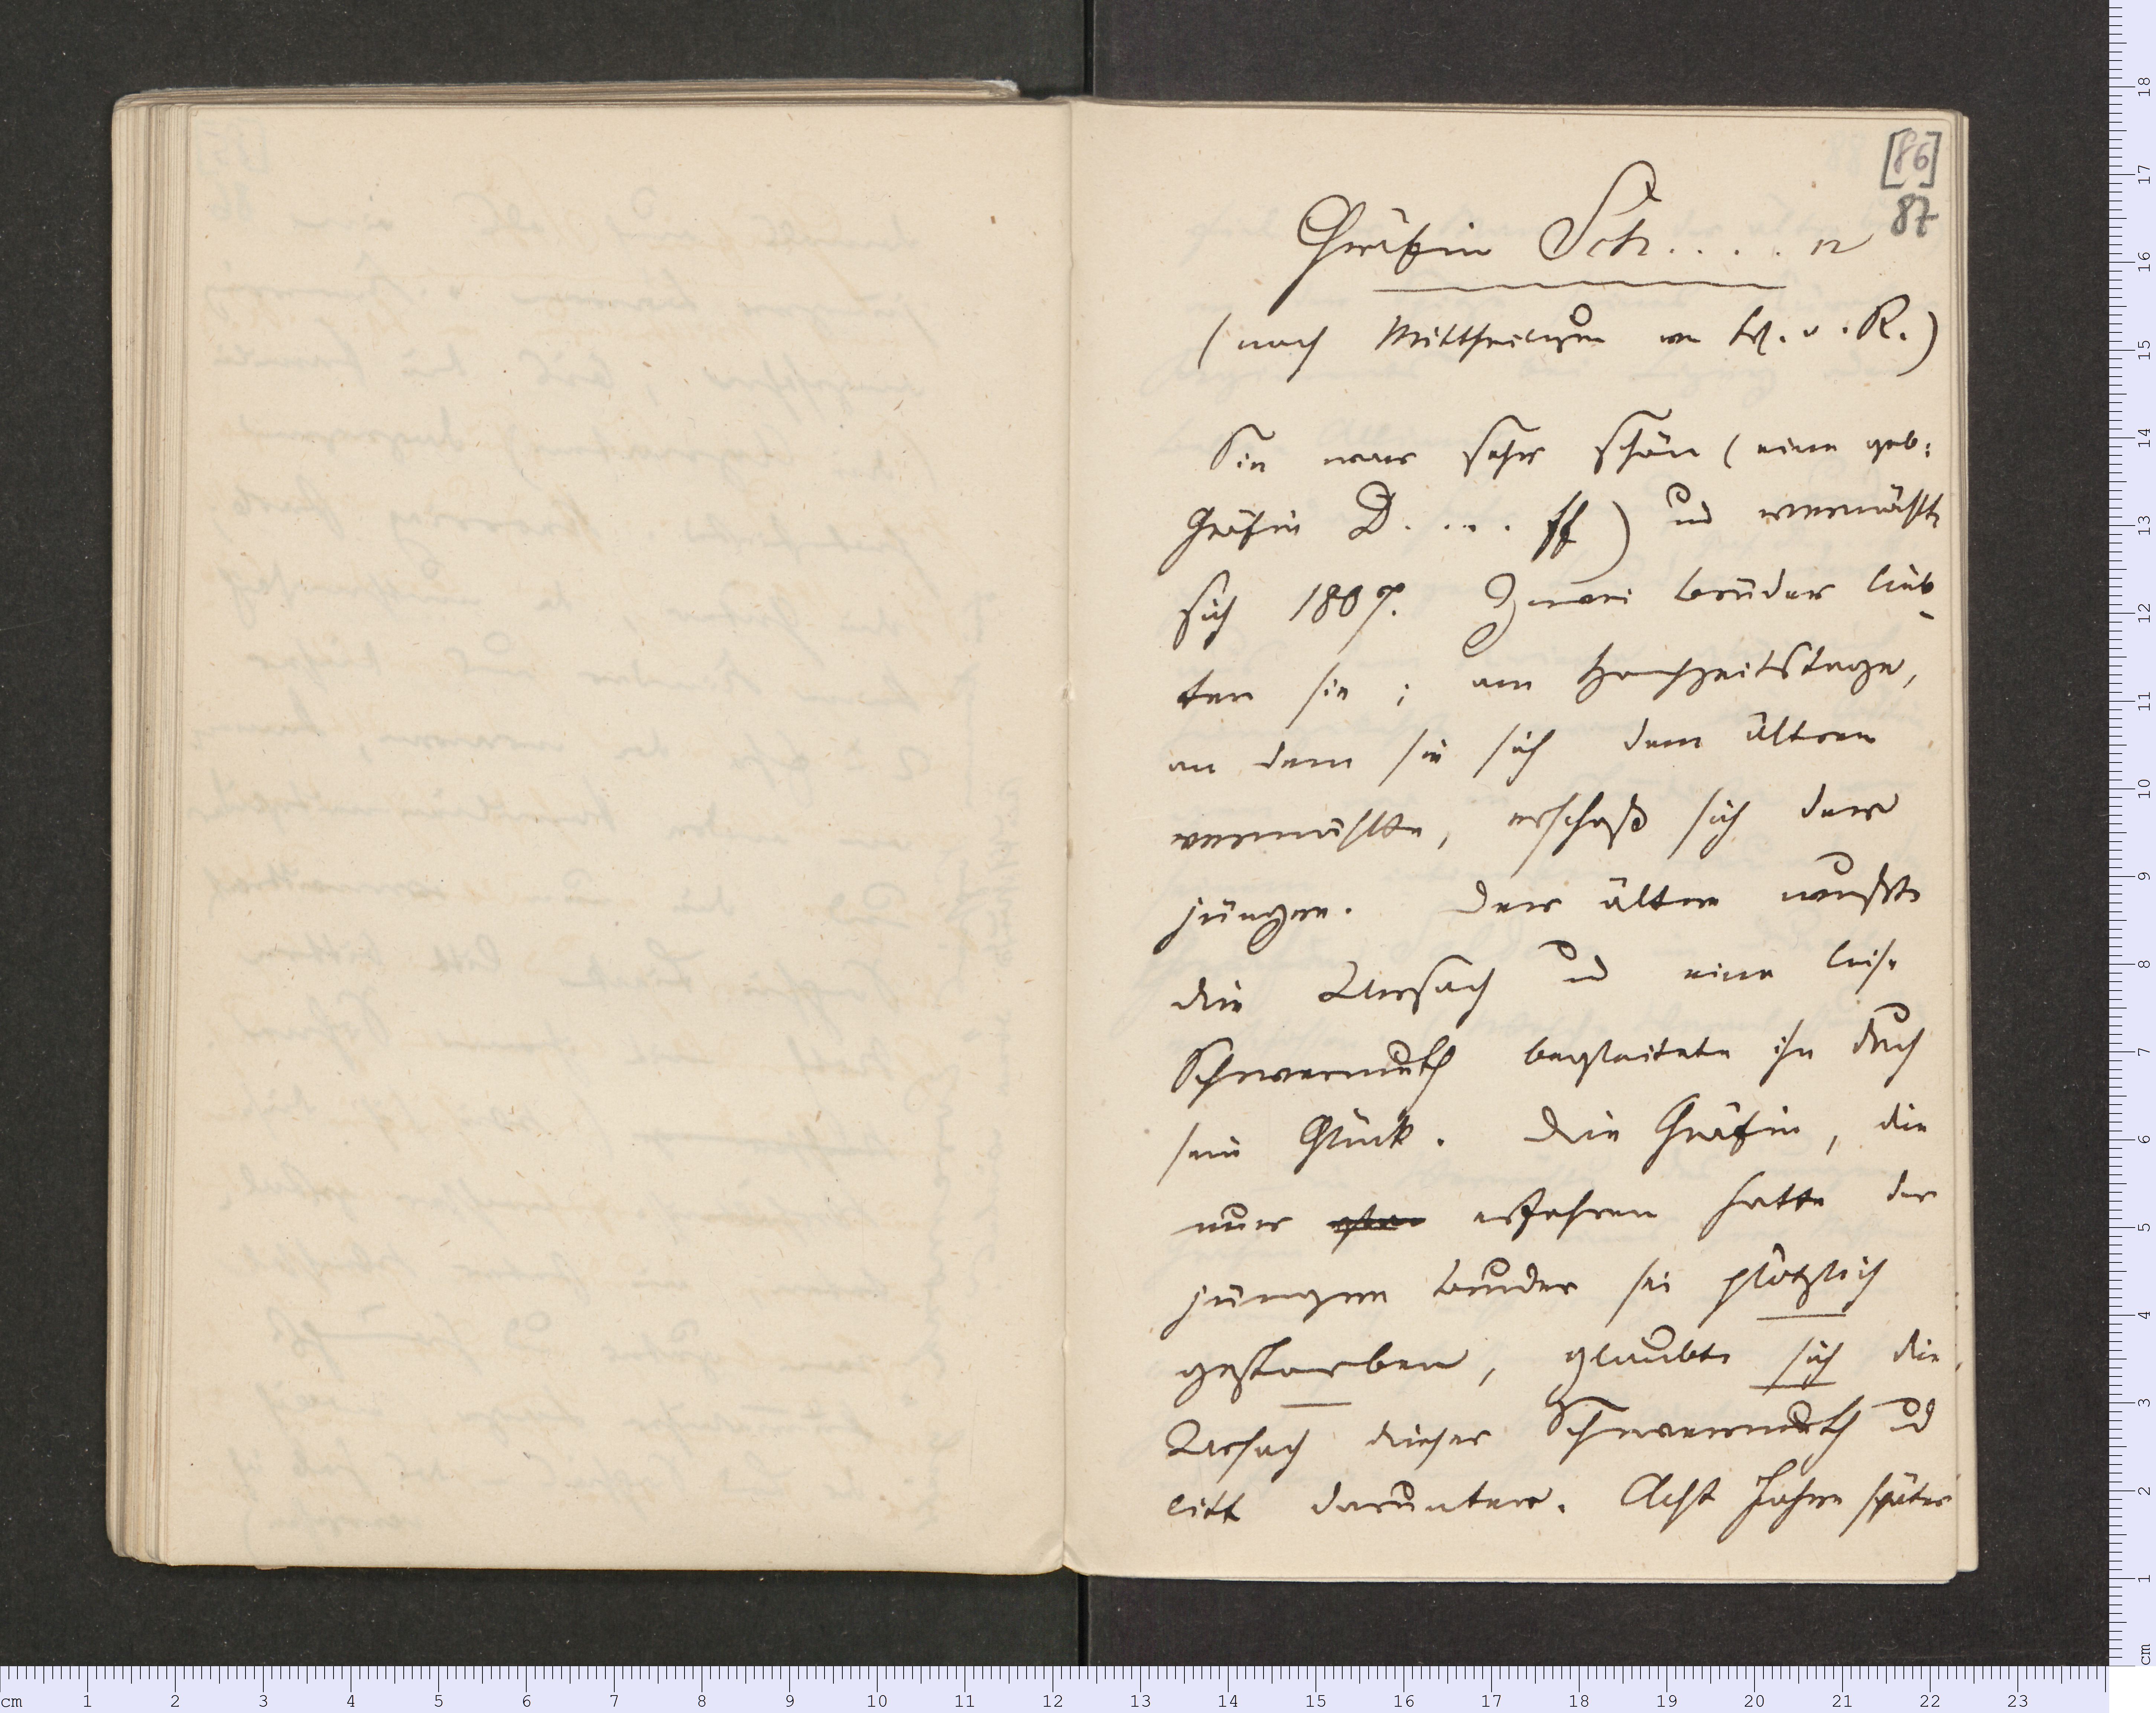 [86]
87
Gräfin Sch. . . . n
(nach Mittheilungen von M. v. R.)
Sie war sehr schön (eine geb:
Gräfin D. ... ff) und vermählte
sich 1809. Zwei Brüder lieb-
ten sie; am Hochzeitstage,
an dem sie sich dem ältren
vermählte, erschoß sich der
jüngre. Der ältre wußte
die Ursach und eine leise
Schwermuth begleitete ihn durch
sein Glück. Die Gräfin, die
nur erfahren hatte der
jüngre Bruder sei plötzlich
gestorben, glaubte sich die
Ursach dieser Schwermuth und
litt darunter. Acht Jahre später